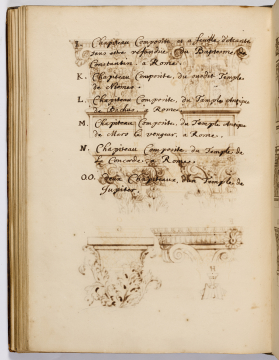 I. Chapiteau Composite et a feuille d'Acante
sans estre refendue. Du Baptesme de
Constantin. a Rome.
K. Chapiteau Composite, du susdit Temple
de Nismes.
L. Chapiteau Composite, du Temple Antique
de Bachus. a Rome.
M. Chapiteau Composite, du Temple Antique
de Mars le vengeur, a Rome.
N. Chapiteau Composite du Temple, de
la Concorde. a Rome.
O.O. Deux Chapiteaux, d'un Temple, de
Jupiter.